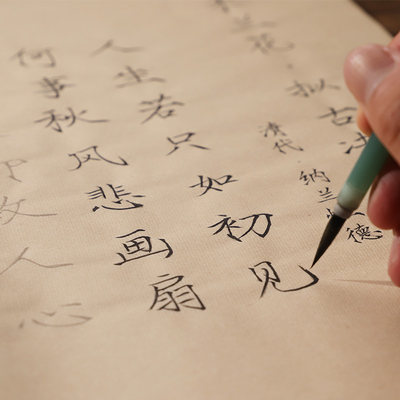 兰花·拟古决
清代 纳兰德
人生若只如初见
何事秋风悲画扇
故人心